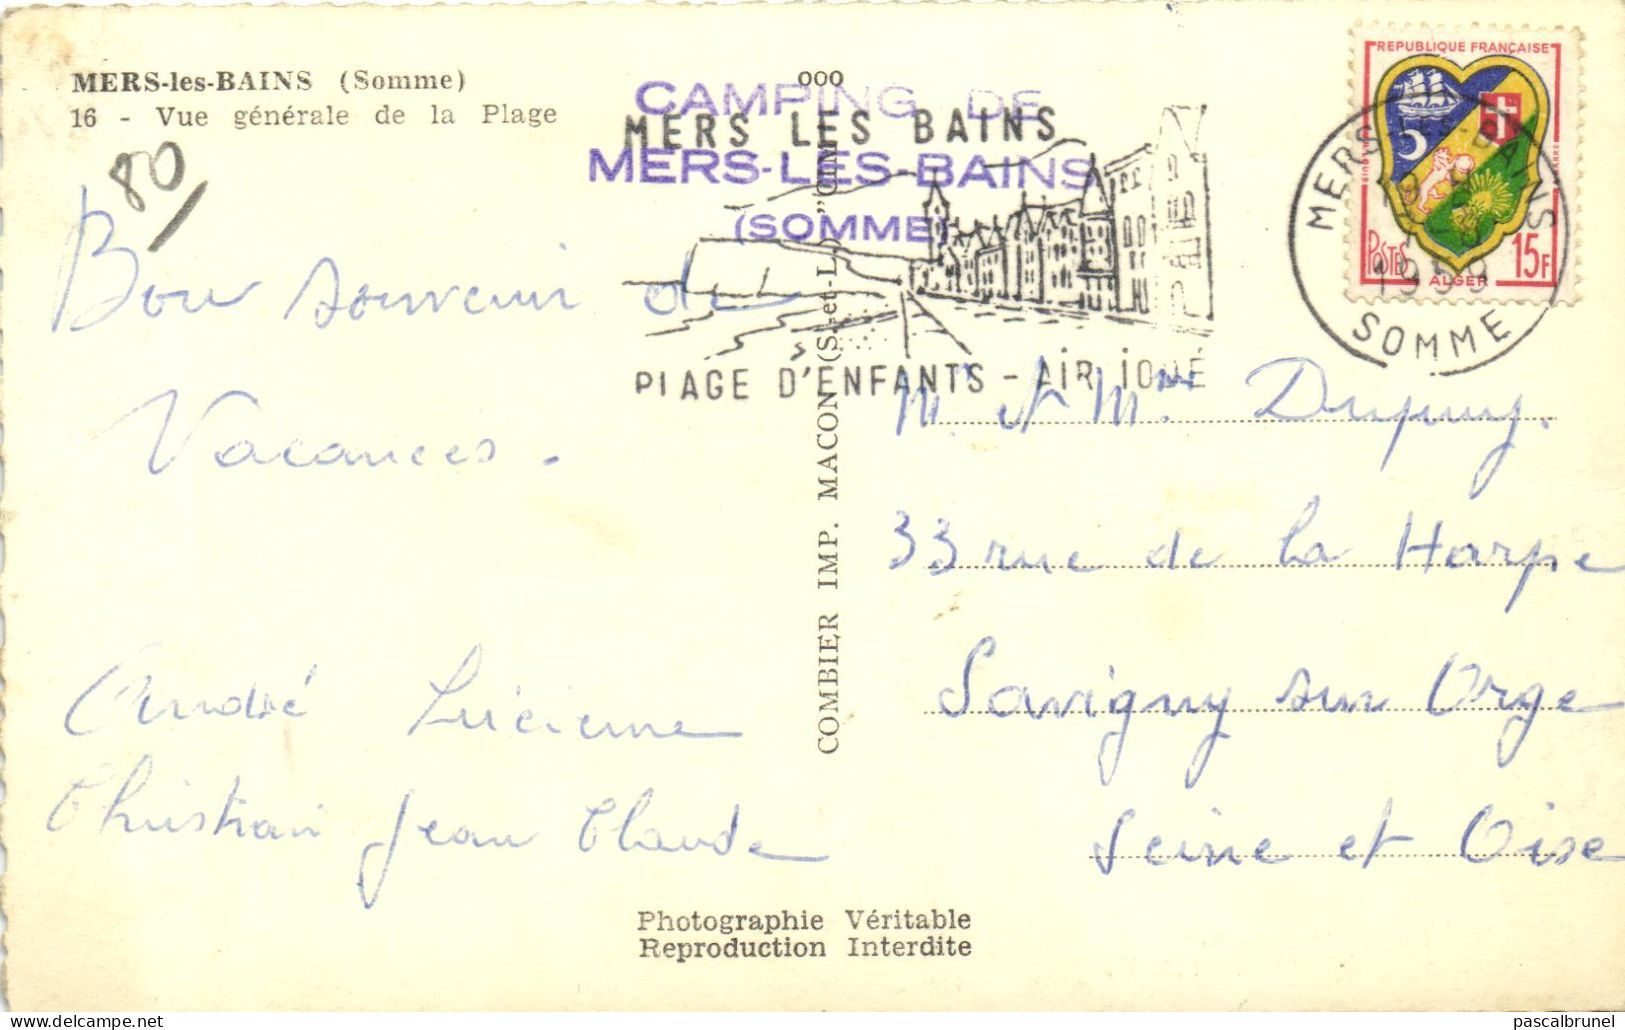 MERS-les-BAINS (Somme)
16 - Vue générale de la Plage
80
Bon souvenir de
Vacances.
André Lucienne
Christian Jean Claude
CAMPING DE
MERS-LES-BAINS
(SOMME)
MERS LES BAINS
PLAGE D'ENFANTS - AIR IODÉ
COMBIER IMP. MACON (S.-et-L.) "CIM"
REPUBLIQUE FRANÇAISE
POSTES
ALGER
15F
MERS-LES-BAINS
1959
SOMME
Mr et Mme Dupuy.
33 rue de la Harpe
Savigny sur Orge
Seine et Oise
Photographie Véritable
Reproduction Interdite
pascalbrunel